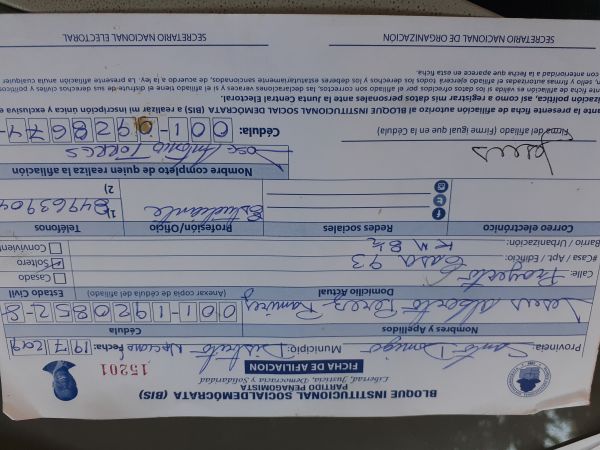 BLOQUE INSTITUCIONAL SOCIALDEMÓCRATA (BIS)
PARTIDO PEÑAGOMISTA
Libertad, Justicia, Democracia y Solidaridad
FICHA DE AFILIACIÓN 15201
Provincia: Santo Domigo Municipio: Distrito Nacional Fecha: 19 7 2019
Nombres y Apellidos Cédula
Jesus alberto Perez Ramirez 001-1920852-8
Domicilio Actual (Anexar cédula del afiliado) Estado Civil
Calle: Proyerto Casado
#Casa / Apt. / Edificio: Casa 93 Soltero
Barrio / Urbanización: KM 8½ Convivien
Correo electrónico Redes sociales Profesión/Oficio Teléfonos
Estudiante 1) 84963904
2)
Nombre completo de quien realiza la afiliación
Jose Antonio Torres
Firma del afiliado (Firme igual que en la Cédula) Cédula: 001-0928674-
ante la presente ficha de afiliación autorizo al BLOQUE INSTITUCIONAL SOCIAL DEMÓCRATA (BIS) a realizar mi inscripción única y exclusiva e
ización política, así como a registrar mis datos personales ante la Junta Central Electoral.
nte ficha de afiliación es válida si los datos ofrecidos por el afiliado son correctos, las declaraciones veraces y si el afiliado tiene el disfrute de sus derechos civiles y políticos
n, sello y firmas autorizadas el afiliado ejercerá todos los derechos y los deberes estatutariamente sancionados, de acuerdo a la ley. La presente afiliación anula cualquier
con anterioridad a la fecha que aparece en esta ficha.
SECRETARIO NACIONAL DE ORGANIZACIÓN SECRETARIO NACIONAL ELECTORAL